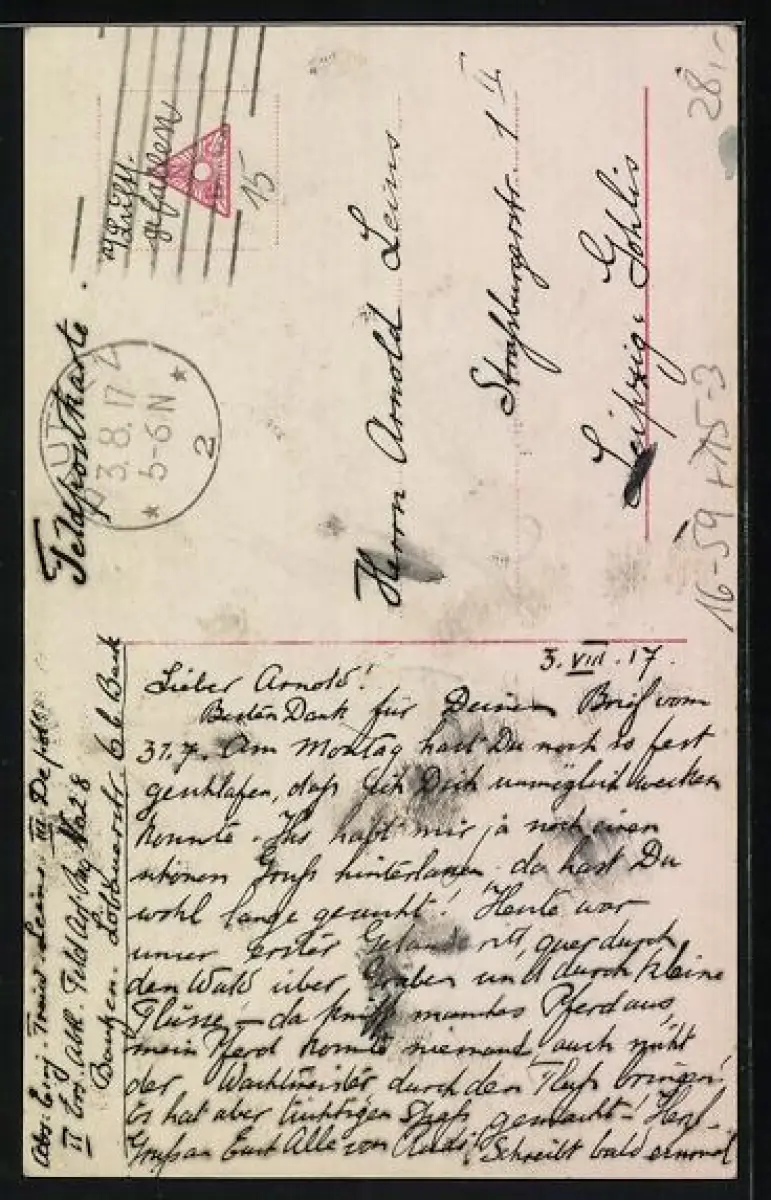 Feldpostkarte.
gefallen
15
3.8.17
5-6 N
2
Herrn Arnold Leins
Straßburgerstr. 1 II
Leipzig-Gohlis
28,-
16-59 + 15-3
Abs: Einj. Leins. III Depot
II Ers. Abt. Feld Art. Rg No 28
Bautzen. Löbauerstr.
3. VIII. 17.
Lieber Arnold!
Besten Dank für Deinen Brief vom
31.7. Am Montag hast Du noch so fest
geschlafen, daß ich Dich unmöglich wecken
konnte. Ihr habt mir ja noch einen
schönen Gruß hinterlassen. da hast Du
wohl lange gesucht! Heute war
unser erster Geländeritt, quer durch
den Wald über Gräben und durch kleine
Flüsse! – da kniff manches Pferd aus,
mein Pferd konnte niemand, auch nicht
der Wachtmeister durch den Fluß bringen!
Es hat aber tüchtigen Spaß gemacht! Herzl.
Gruß an Euch Alle von Schreibt bald einmal